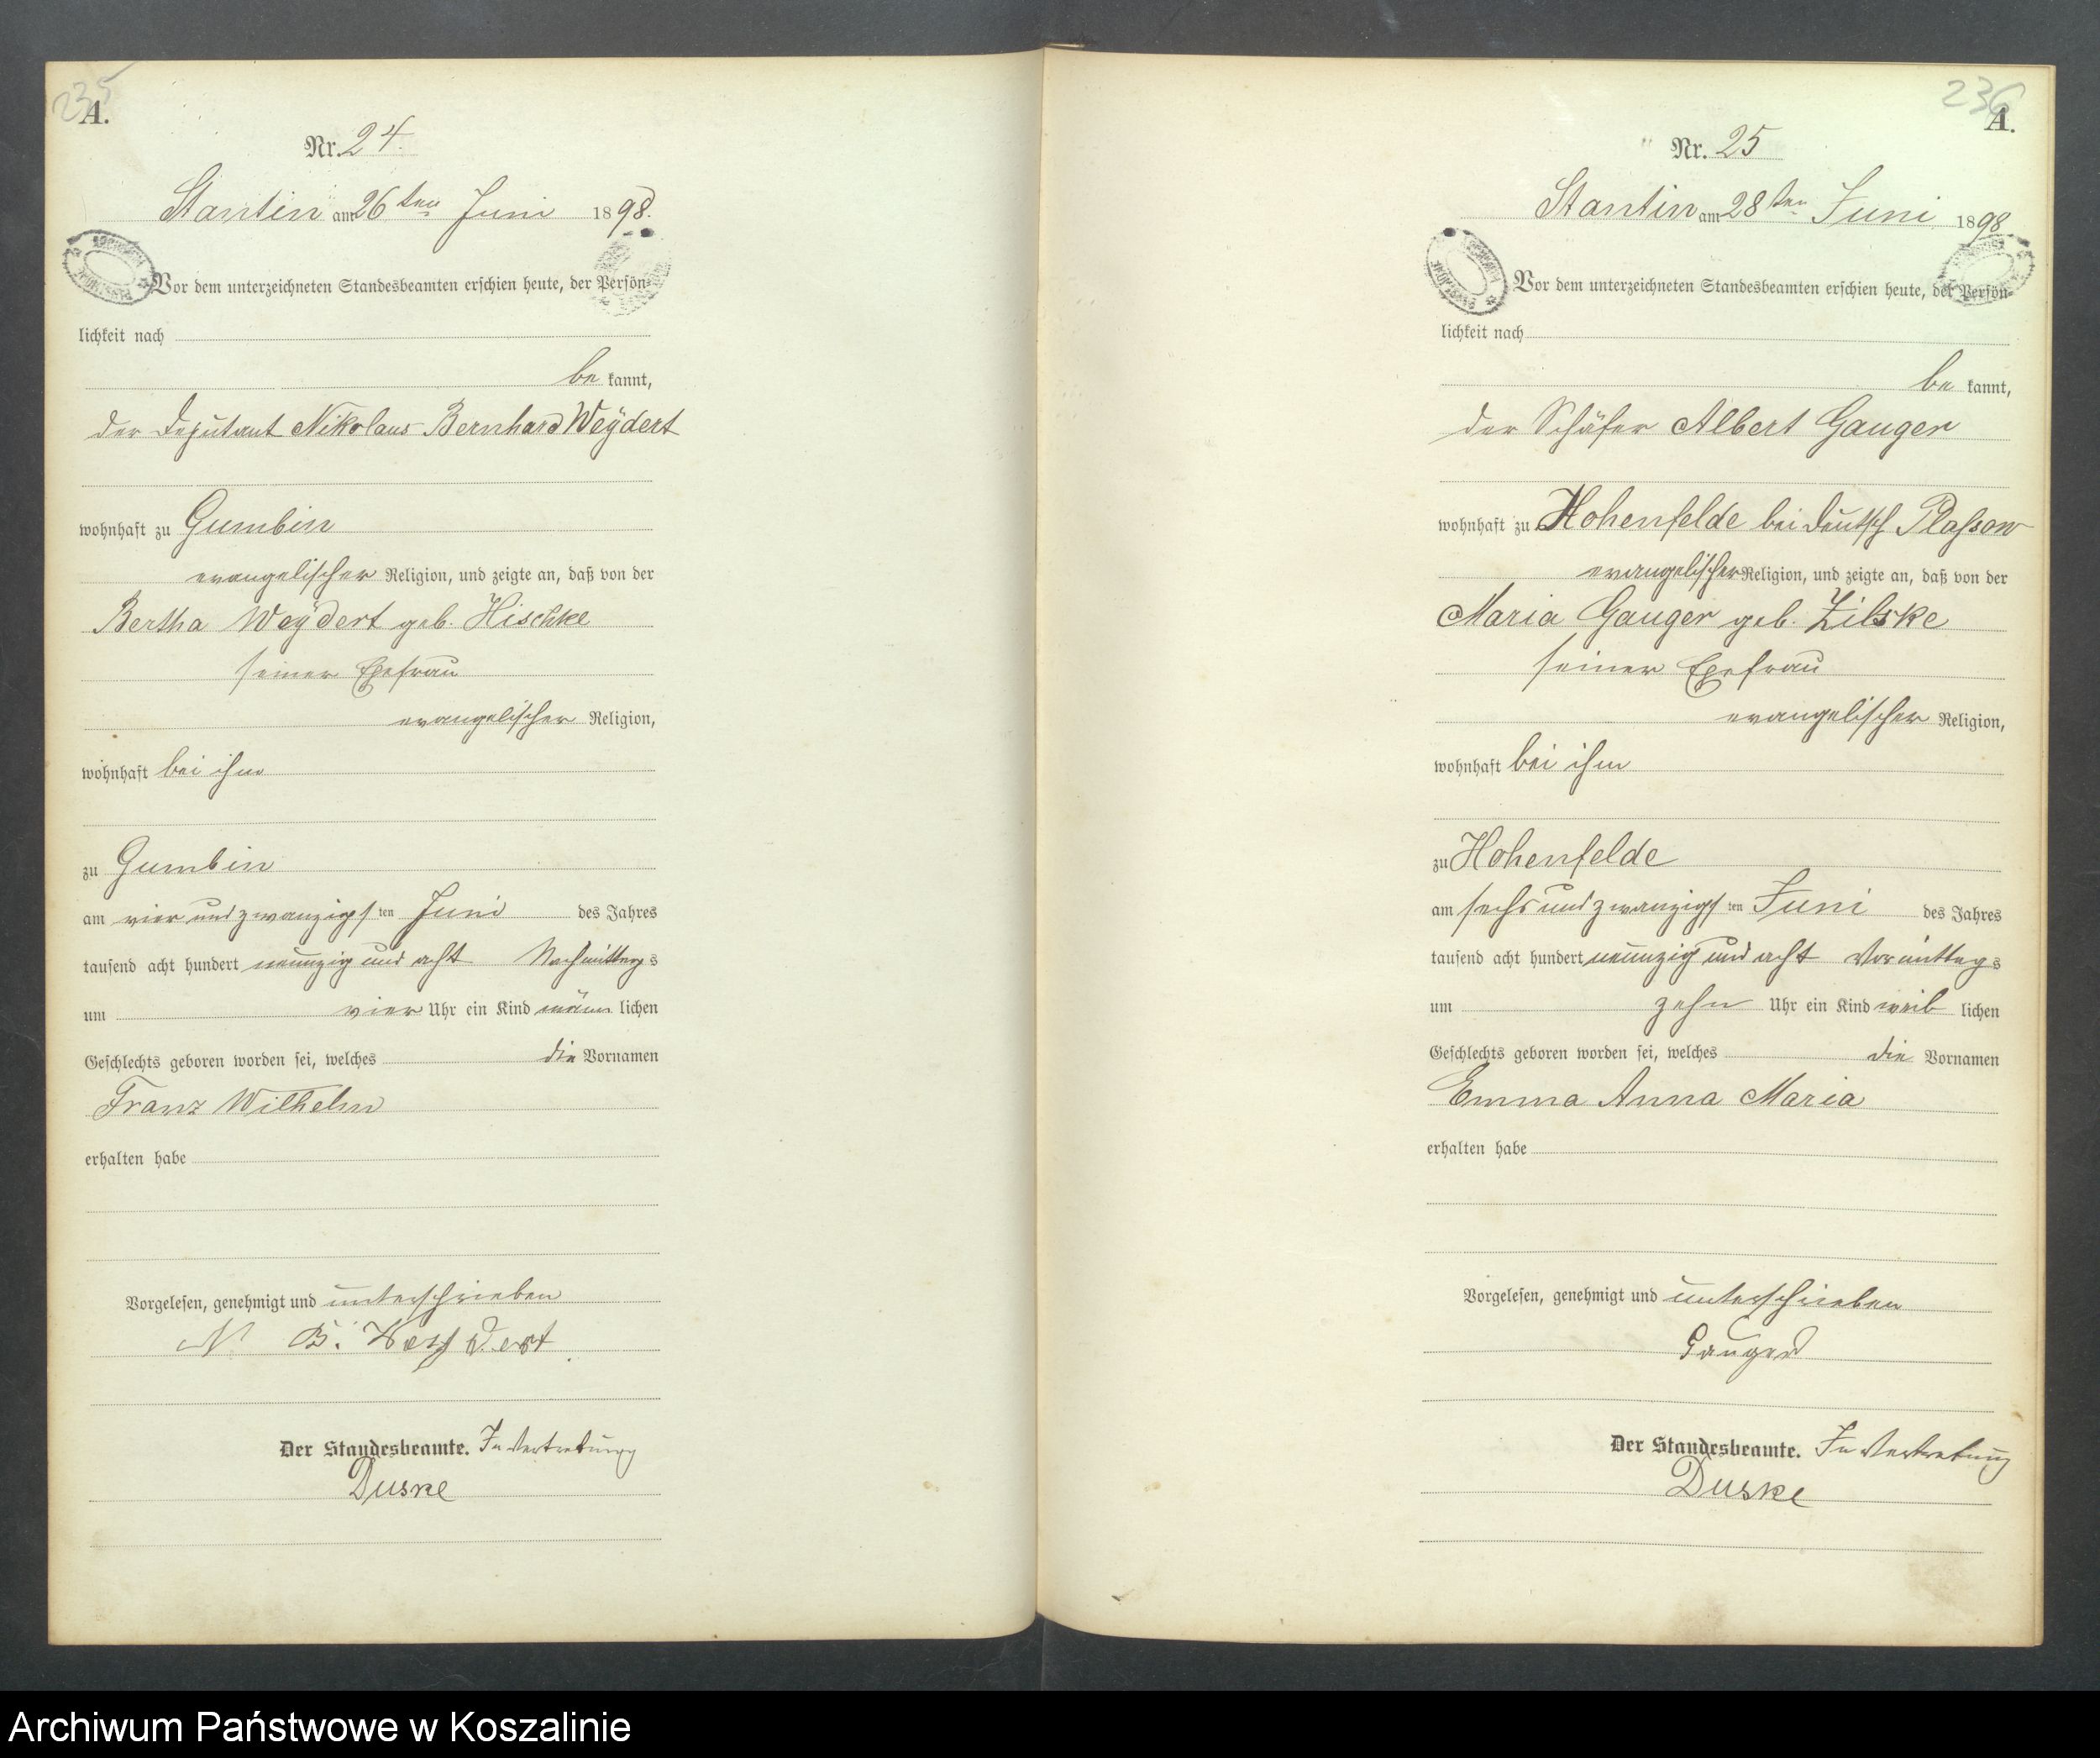 235
A.
Nr. 24.
Stantin am 26ten Juni 1898.
Vor dem unterzeichneten Standesbeamten erschien heute, der Persön-
lichkeit nach
be kannt,
der Deputant Nikolaus Bernhard Weÿdert
wohnhaft zu Gumbin
evangelischer Religion, und zeigte an, daß von der
Bertha Weÿdert geb. Hischke
seiner Ehefrau
evangelischer Religion,
wohnhaft bei ihm
zu Gumbin
am vier und zwanzigsten Juni des Jahres
tausend acht hundert neunzig und acht Nachmittags
um vier Uhr ein Kind männlichen
Geschlechts geboren worden sei, welches die Vornamen
Franz Wilhelm
erhalten habe
Vorgelesen, genehmigt und unterschrieben
N B. Weydert
Der Standesbeamte. In Vertretung
Duske
236
A.
Nr. 25
Stantin am 28ten Juni 1898
Vor dem unterzeichneten Standesbeamten erschien heute, der Persön-
lichkeit nach
be kannt,
der Schäfer Albert Gauger
wohnhaft zu Hohenfelde bei deutsch Plassow
evangelischer Religion, und zeigte an, daß von der
Maria Gauger geb. Zilske
seiner Ehefrau
evangelischer Religion,
wohnhaft bei ihm
zu Hohenfelde
am sechs und zwanzigsten Juni des Jahres
tausend acht hundert neunzig und acht Vormittags
um zehn Uhr ein Kind weiblichen
Geschlechts geboren worden sei, welches die Vornamen
Emma Anna Maria
erhalten habe
Vorgelesen, genehmigt und unterschrieben
Gauger
Der Standesbeamte. In Vertretung
Duske
Archiwum Państwowe w Koszalinie